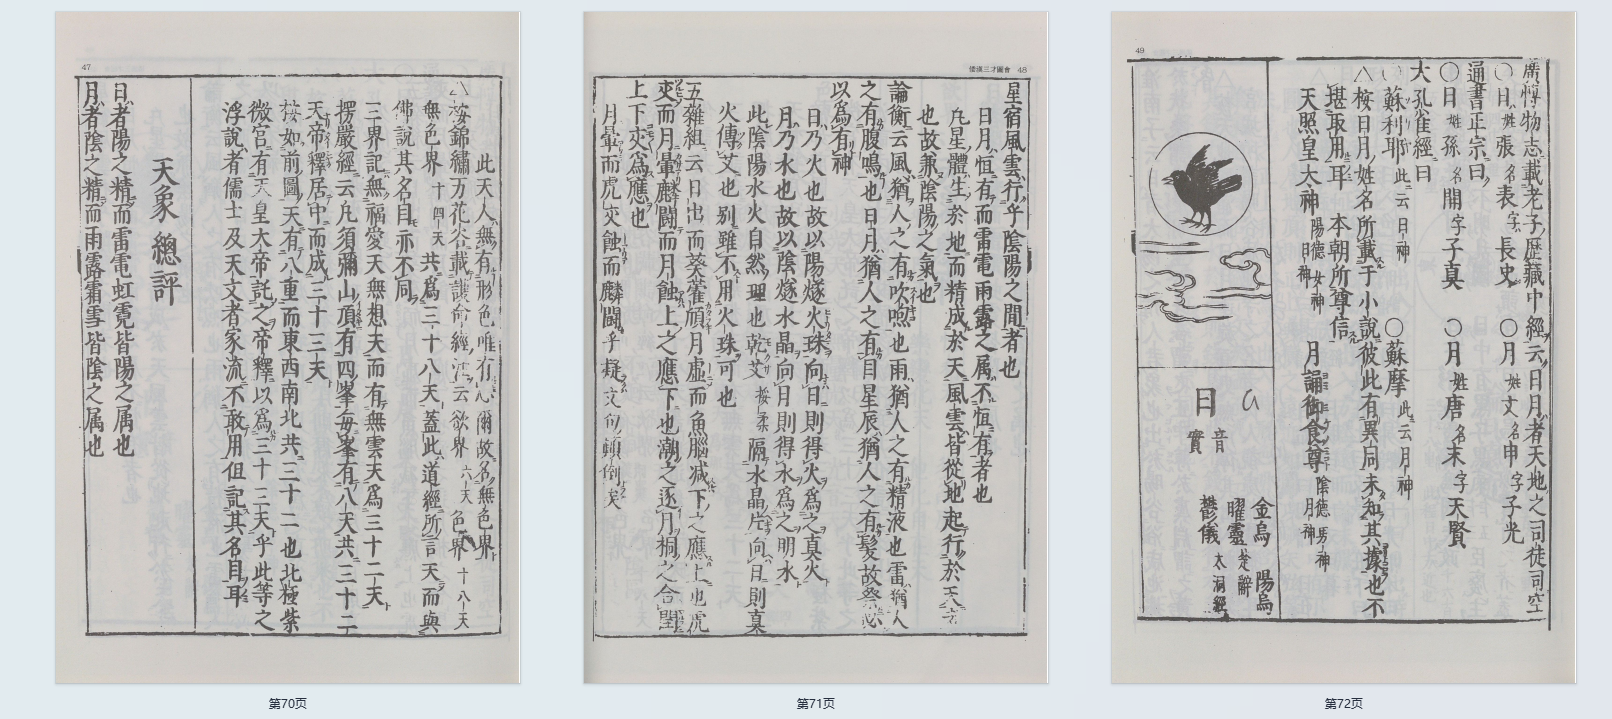 47
此天人無有形色唯有心爾故名無色界
△按錦繡万花谷載護命經註云欲界六天色界十八天
無色界十四天共爲三十八天蓋此道經所言天而與
佛說其名目亦不同
三界記無福愛天無想天而有無雲天爲三十二天
楞嚴經云凡須彌山頂有四峯每峯有八天共三十二
天帝釋居中而成三十三天
按如前圖天有八重而東西南北共三十二也北極紫
微宮有天皇大帝託之帝釋以爲三十三天乎此等之
浮說者儒士及天文者家流不敢用但記其名目耳
天象總評
日者陽之精而雷電虹霓皆陽之属也
月者陰之精而雨露霜雪皆陰之属也
第70页
倭漢三才圖會 48
星宿風雲行乎陰陽之間者也
日月恒有而雷電雨露之属不恒有者也
凡星體生於地而精成於天風雲皆從地起行於天
也故兼陰陽之氣也
論衡云風猶人之有吹喣也雨猶人之有精液也雷猶人
之有腹鳴也日月猶人之有目星辰猶人之有髪故祭
以爲有神
日乃火也故以陽燧火珠向日則得火爲之真火
月乃水也故以陰燧水晶向月則得水爲之明水
此陰陽水火自然理也乾艾按柔隔水晶片向日則真
火傳艾也别雖不用火珠可也
五雜組云日出而葵藿傾月虛而魚腦减下之應上也虎
交而月暈麟鬪而月蝕上之應下也潮之逐月桐之合閏
上下交爲應也
月暈而虎交蝕而麟鬪乎疑文句顛倒矣
第71页
49
廣博物志載老子歷藏中經云日月者天地之司徒司空
〇日姓張名表字長史 〇月姓文名申字子光
通書正宗曰
〇日姓孫名開字子真 〇月姓唐名末字天賢
大孔雀經曰
〇蘇利耶此云日神 〇蘇摩此云月神
△按日月姓名所載于小說彼此有異同未知其據也不
堪取用耳 本朝所尊信
天照皇大神陽德女神日神 月誦御食尊陰德男神月神
日
音
實
金烏 陽烏
曜靈楚辭
鬱儀太洞經
第72页